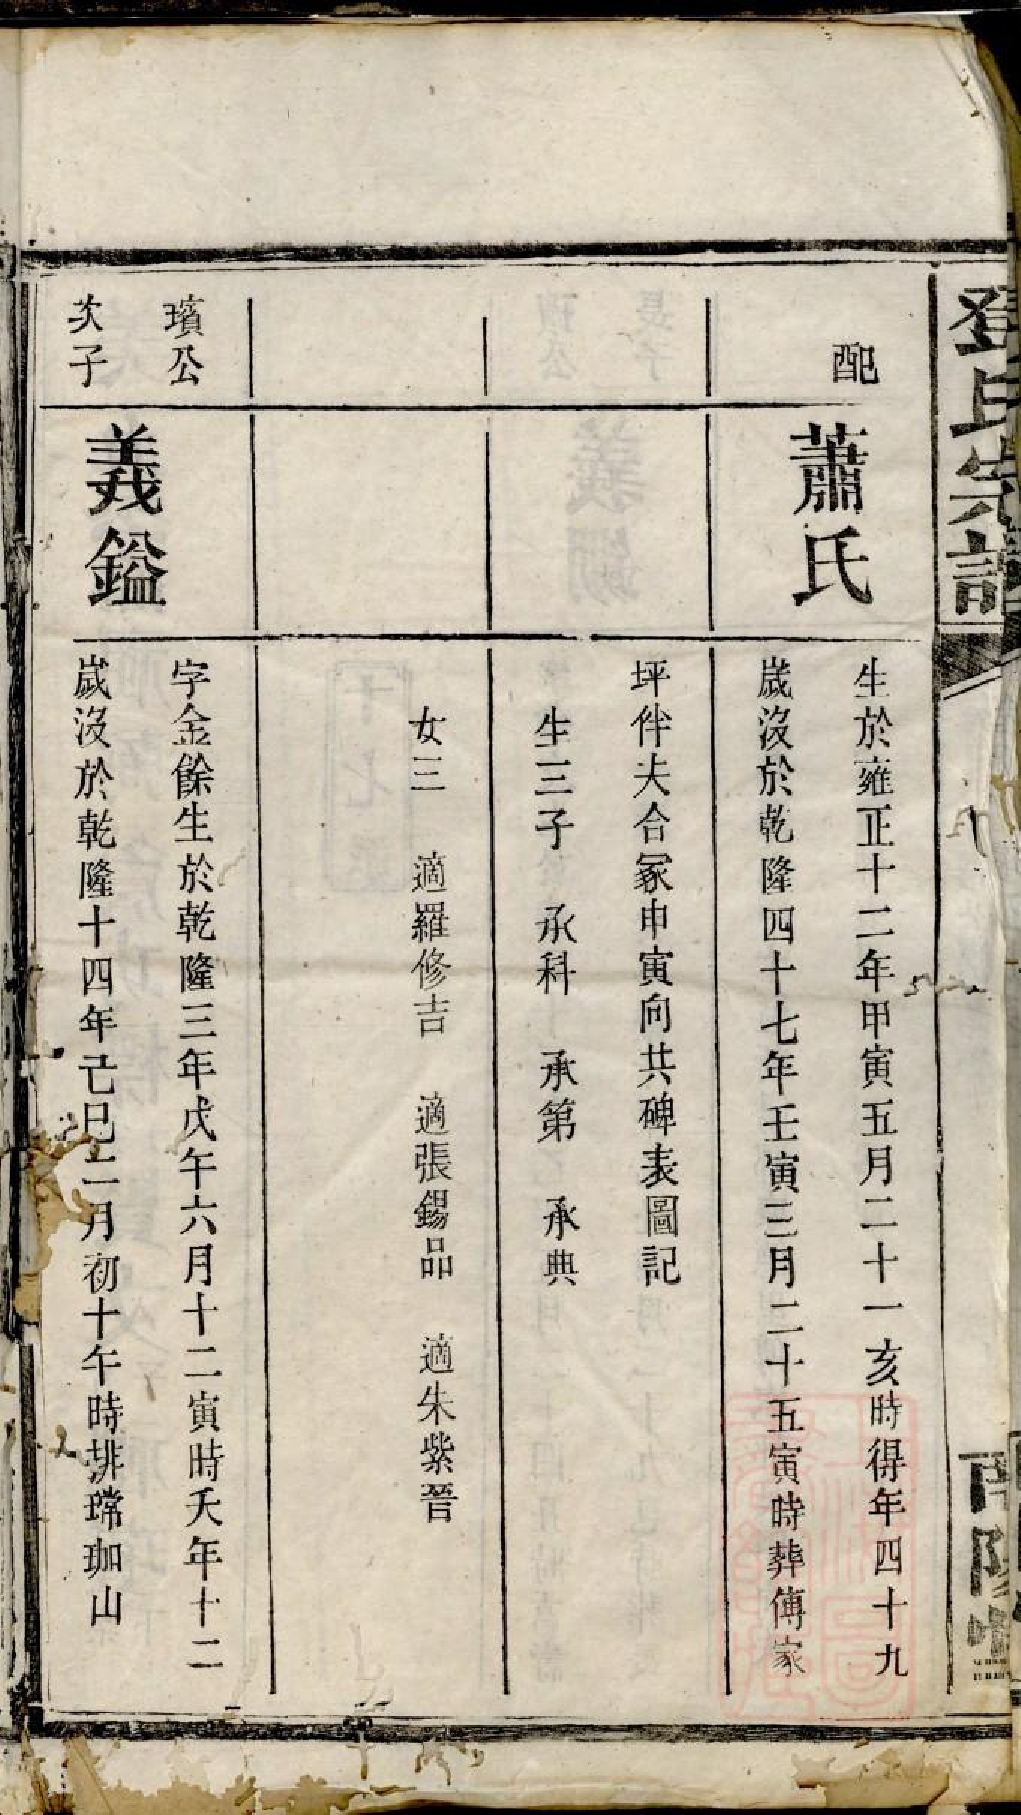 鄧氏宗譜
南陽堂
配
蕭氏
生於雍正十二年甲寅五月二十一亥時得年四十九
歲沒於乾隆四十七年壬寅三月二十五寅時葬傅家
坪伴夫合冢申寅向共碑表圖記
生三子 承科 承第 承典
女三 適羅修吉 適張錫品 適朱紫晉
瑸公
次子
義鎰
字金餘生於乾隆三年戊午六月十二寅時夭年十二
歲沒於乾隆十四年己巳二月初十午時排瑺珈山